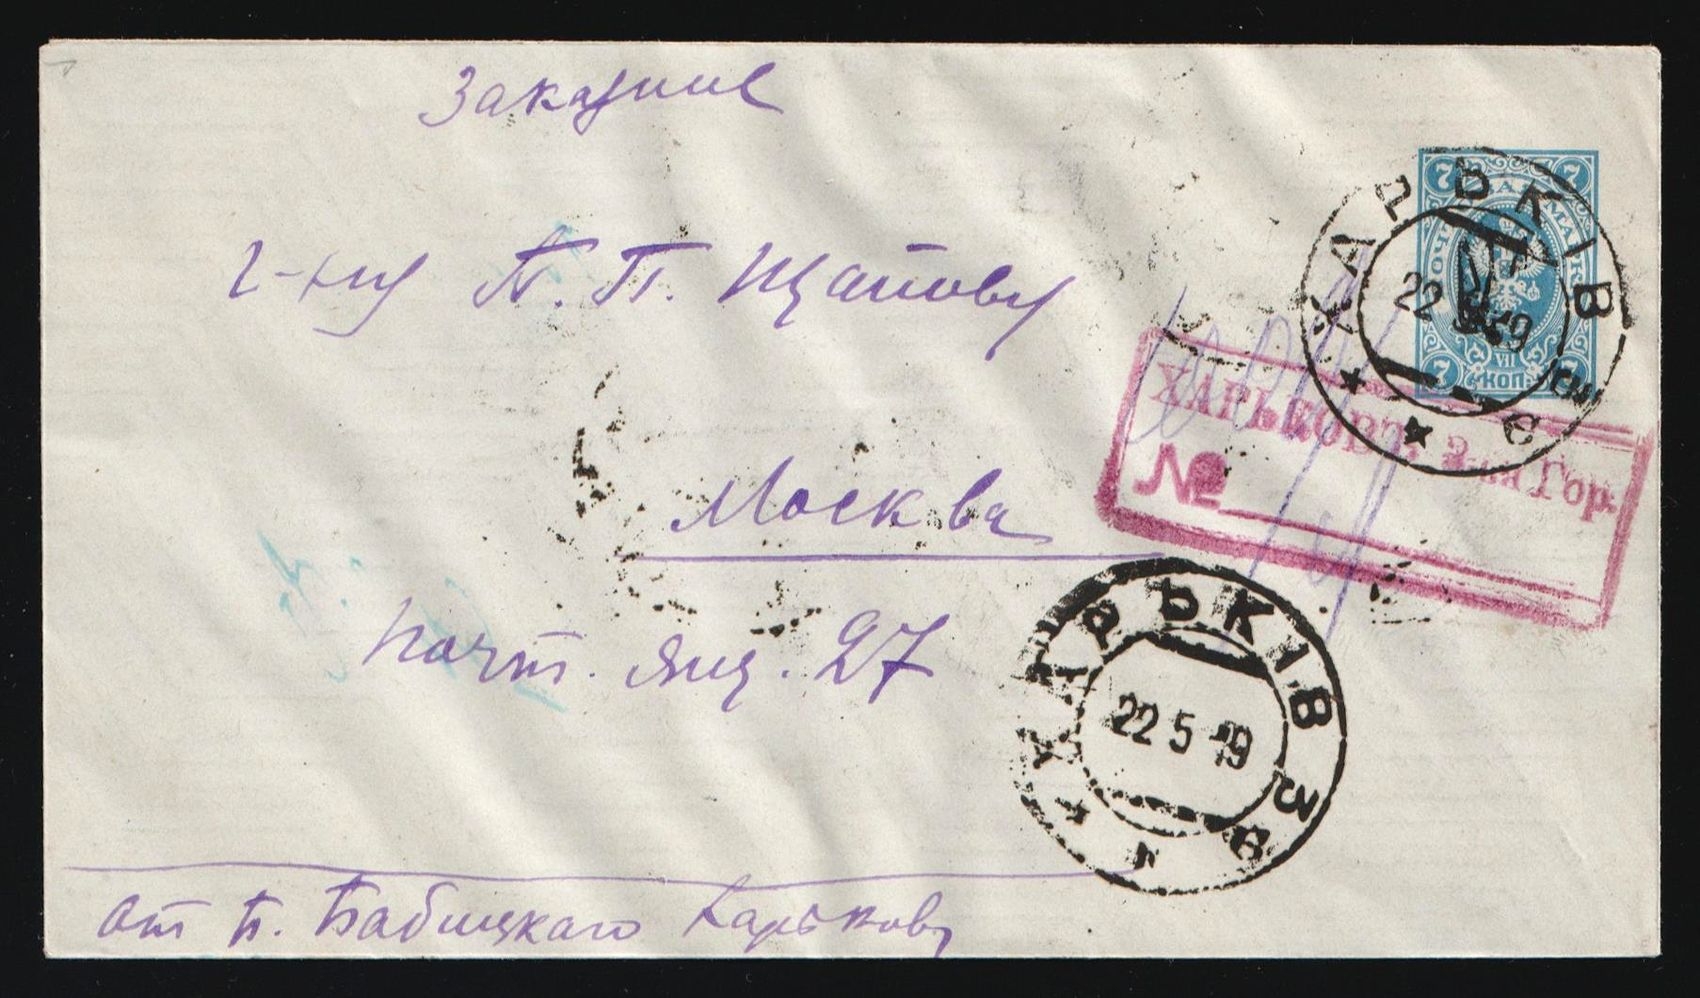 Заказное
Г-ну А. П. Щапову
Москва
Почт. ящ. 27
от Б. Бабицкаго Харьковъ
7 7
ПОЧТ МАРК
VII
7 КОП. 7
ХАРЬКІВ
22 5 19
ХАРЬКОВЪ 3 Гор.
№
ХАРЬКІВ 3 в
22 5 19